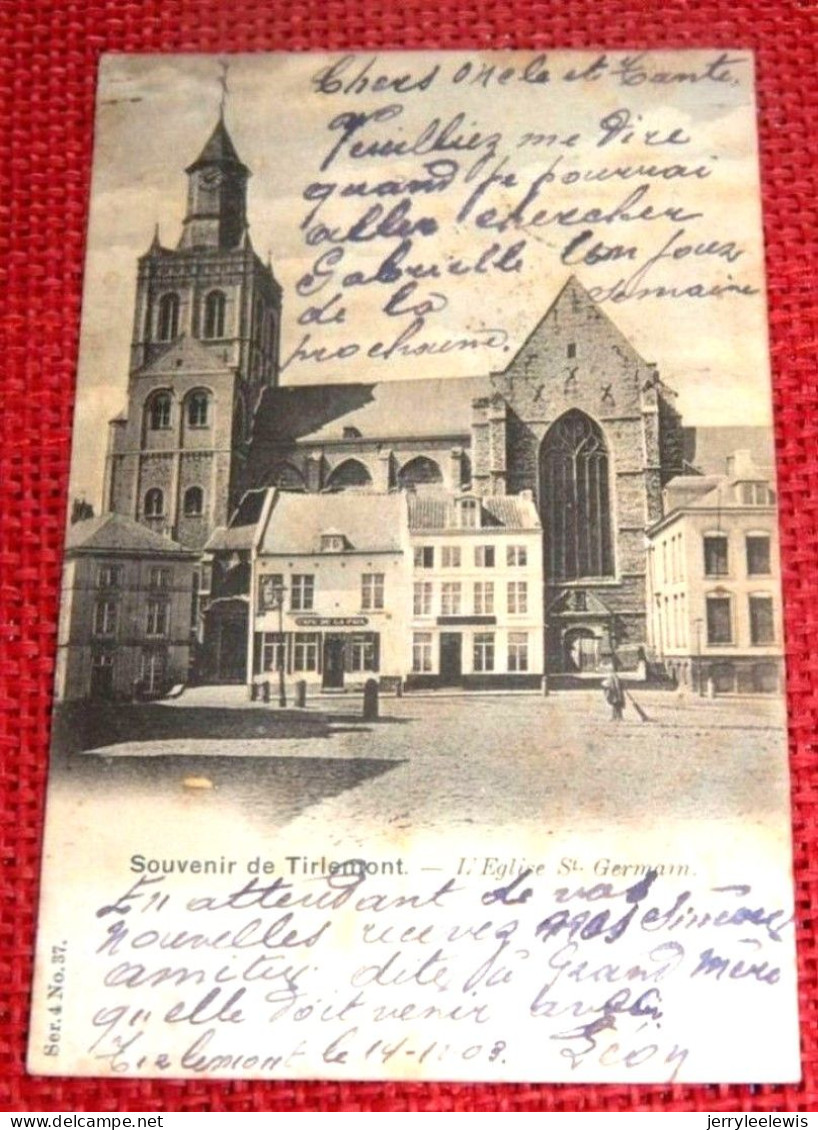 Chers Oncle et Tante
Veuilliez me dire
quand je pourrai
aller chercher
Gabrielle un jour
de la semaine
prochaine
CAFÉ DE LA PAIX
Souvenir de Tirlemont. — L'Eglise St. Germain.
En attendant de vos
nouvelles recevez nos sincères
amitiez dites à Grand Mère
qu'elle doit venir avec
Tirlemont le 14-11-03. Léon
Ser. 4 No. 37.
jerryleelewis